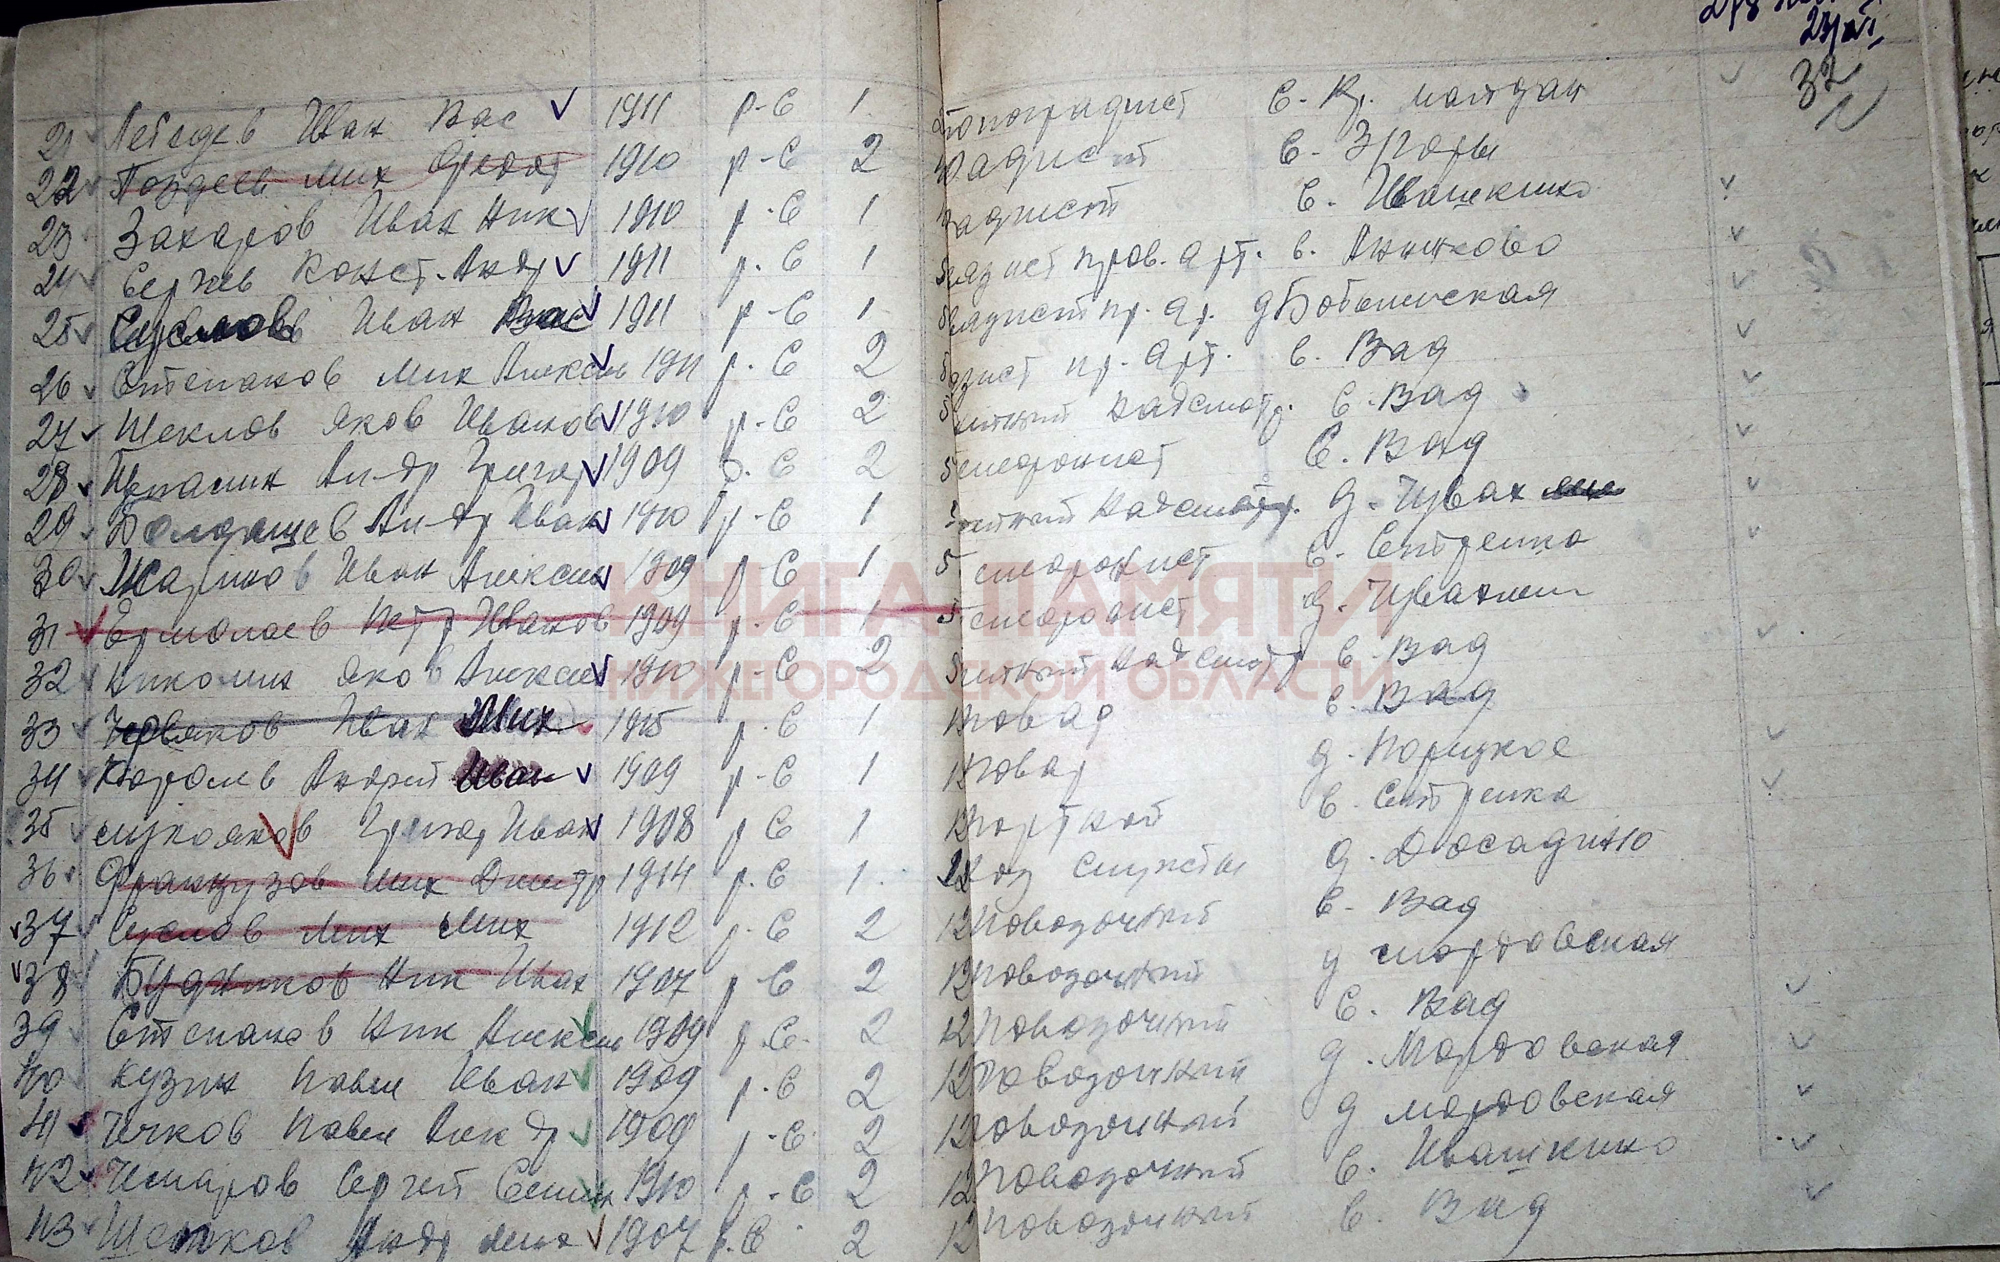 23/VI
32
21 Лебедев Иван Вас 1911 р-С 1 С. Кр. майдан
22 Поздеев Мих Федот 1910 р-С 2 радист С. Згоры
23 Захаров Иван Ник 1910 р-С 1 радист С. Ивашкино
24 Сергеев Конст. Андр 1911 р.С 1 5 радист пров. арт. с. Анненково
25 Суслов Иван Вас 1911 р-С 1 5 радист пр. ар. д Бобылейская
26 Степанов Мих Алексеев 1911 р.С 2 5 радист пр. Арт. с. Вад
27 Шеклов Яков Иванов 1910 р-С 2 5 надсмотр. С. Вад
28 Андр Григор 1909 р.С 2 5 телефонист С. Вад
29 Ал-др Иван 1910 р-С 1 надсмотр. д.
30 Жарков Иван Алексеев 1909 р-С 1 5 телефонист С. Стрелка
31 Ермолаев Петр Иванов 1909 р-С 1 5 телефонист
32 Николин Яков Алексеев 1910 р-С 2 5 надсмотр С. Вад
33 Червяков Иван Мих 1915 р.С 1 повар С. Вад
34 Королев Андрей Иван 1909 р-С 1 12 повар д. Порецкое
35 Григор Иван 1908 р С 1 12 портной С. Стрелка
36 Французов Мих Дмитр 1914 р.С 1 12 хоз службы д. Досадино
37 Суслов Мих Мих 1912 р.С 2 12 повозочный С. Вад
38 Будников Ник Иван 1907 р-С 2 12 повозочный д мордовская
39 Степанов Ник Алексеев 1909 р.С. 2 12 повозочный С. Вад
40 Кузин Павел Иван 1909 р.С 2 12 повозочный д. Мордовская
41 Чичков Павел Алек др 1909 р-С 2 12 повозочный д мордовская
42 Сергей Семен 1910 р-С 2 12 повозочный С. Ивашкино
43 Андр Мих 1907 р.С 2 12 повозочный С. Вад
КНИГА ПАМЯТИ
НИЖЕГОРОДСКОЙ ОБЛАСТИ